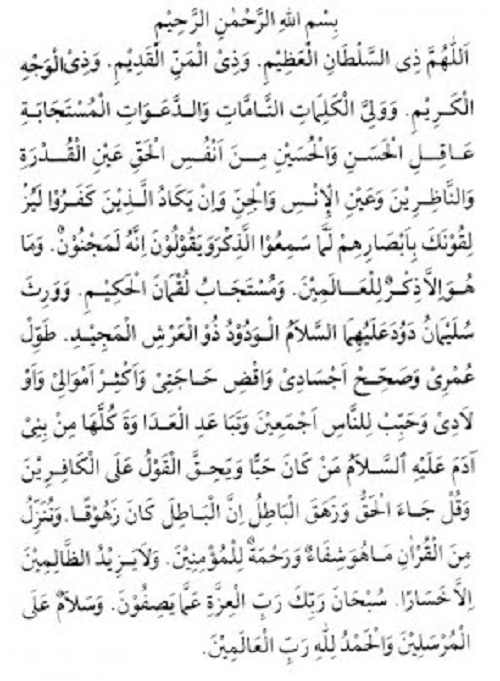 بِسْمِ اللهِ الرَّحْمٰنِ الرَّحِيْمِ
اَللّٰهُمَّ ذِى السُّلْطَانِ الْعَظِيْمِ. وَذِى الْمَنِّ الْقَدِيْمِ. وَذِى الْوَجْهِ
الْكَرِيْمِ. وَوَلِيِّ الْكَلِمَاتِ التَّامَّاتِ وَالدَّعَوَاتِ الْمُسْتَجَابَةِ
عَاقِلِ الْحَسَنِ وَالْحُسَيْنِ مِنْ اَنْفُسِ الْحَقِّ عَيْنِ الْقُدْرَةِ
وَالنَّاظِرِيْنَ وَعَيْنِ الْإِنْسِ وَالْجِنِّ وَاِنْ يَكَادُ الَّذِيْنَ كَفَرُوْا لَيُزْ
لِقُوْنَكَ بِاَبْصَارِهِمْ لَمَّا سَمِعُوا الذِّكْرَ وَيَقُوْلُوْنَ اِنَّهُ لَمَجْنُوْنٌ. وَمَا
هُوَ اِلاَّ ذِكْرٌ لِلْعَالَمِيْنَ. وَمُسْتَجَابُ لُقْمَانَ الْحَكِيْمِ. وَوَرِثَ
سُلَيْمَانُ دَوُدَ عَلَيْهِمَا السَّلاَمُ الْوَدُوْدُ ذُو الْعَرْشِ الْمَجِيْدِ. طَوِّلْ
عُمْرِىْ وَصَحِّحْ اَجْسَادِىْ وَاقْضِ حَاجَتِىْ وَاَكْثِرْ اَمْوَالِىْ وَاَوْ
لَادِىْ وَحَبِّبْ لِلنَّاسِ اَجْمَعِيْنَ وَتَبَا عَدِ الْعَدَا وَةَ كُلَّهَا مِنْ بَنِىْ
آدَمَ عَلَيْهِ السَّلَامُ مَنْ كَانَ حَيًّا وَيَحِقَّ الْقَوْلُ عَلَى الْكَافِرِيْنَ
وَقُلْ جَاءَ الْحَقُّ وَزَهَقَ الْبَاطِلُ اِنَّ الْبَاطِلَ كَانَ زَهُوْقًا. وَنُنَزِّلُ
مِنَ الْقُرْاٰنِ مَا هُوَ شِفَاءٌ وَرَحْمَةٌ لِلْمُؤْمِنِيْنَ. وَلاَ يَزِيْدُ الظَّالِمِيْنَ
اِلاَّ خَسَارًا. سُبْحَانَ رَبِّكَ رَبِّ الْعِزَّةِ عَمَّا يَصِفُوْنَ. وَسَلاَمٌ عَلَى
الْمُرْسَلِيْنَ وَالْحَمْدُ لِلّٰهِ رَبِّ الْعَالَمِيْنَ.